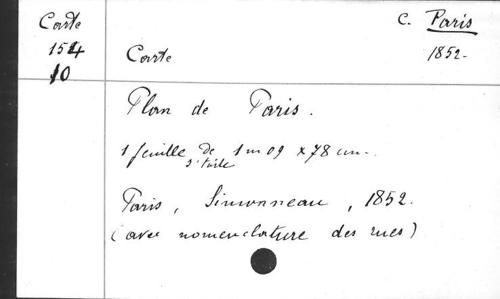 Carte
154
10
C. Paris
1852.
Carte
Plan de Paris.
1 feuille de 1m09 x 78 cm.
s/ toile
Paris, Simonneau, 1852.
(avec nomenclature des rues)